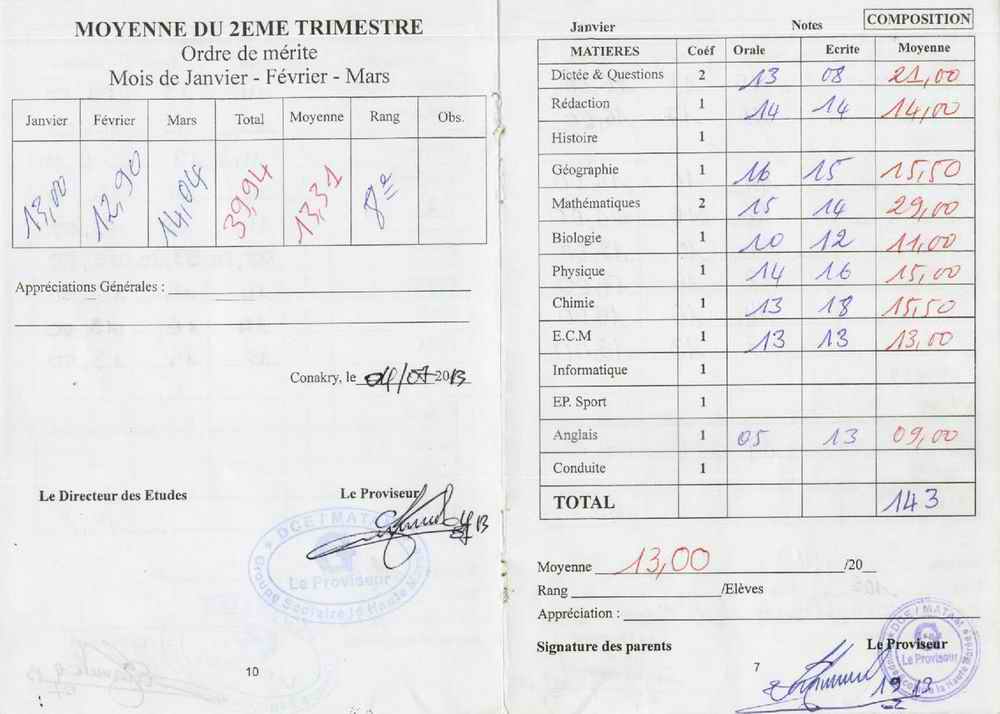 MOYENNE DU 2EME TRIMESTRE
Ordre de mérite
Mois de Janvier - Février - Mars
Janvier Février Mars Total Moyenne Rang Obs.
13,00 12,90 14,04 39,94 13,31 8e
Appréciations Générales :
Conakry, le 04/07 2013
Le Directeur des Etudes Le Proviseur
DCE / MATAM
Le Proviseur
10
Janvier Notes COMPOSITION
MATIERES Coéf Orale Ecrite Moyenne
Dictée & Questions 2 13 08 21,00
Rédaction 1 14 14 14,00
Histoire 1
Géographie 1 16 15 15,50
Mathématiques 2 15 14 29,00
Biologie 1 10 12 11,00
Physique 1 14 16 15,00
Chimie 1 13 18 15,50
E.C.M 1 13 13 13,00
Informatique 1
EP. Sport 1
Anglais 1 05 13 09,00
Conduite 1
TOTAL 143
Moyenne 13,00 /20
Rang /Elèves
Appréciation :
Signature des parents Le Proviseur
DCE / MATAM
Le Proviseur
7